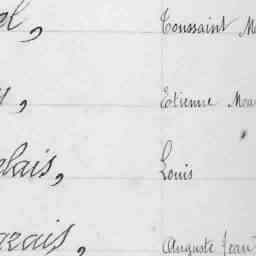 el, Toussaint M
, Etienne Mau
elais, Louis
azais, Auguste Jean